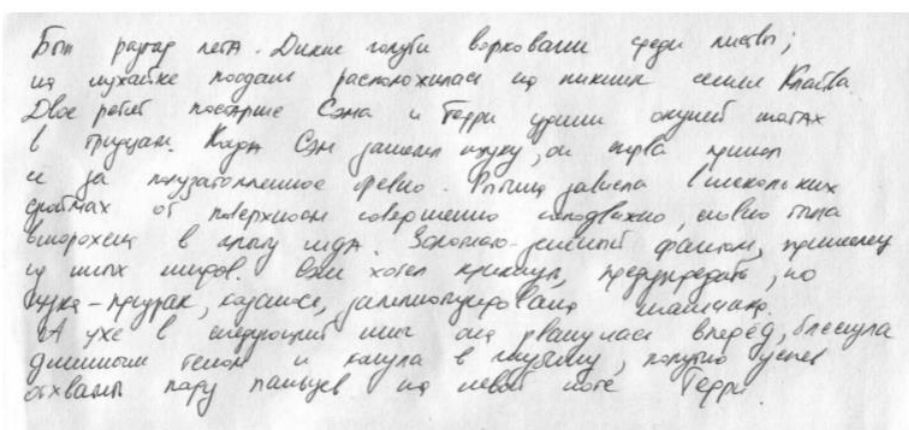 Был разгар лета. Дикие голуби ворковали среди листвы;
на лужайке поодаль расположилась на пикник семья Клайва.
Двое ребят постарше Сэма и Терри удили окуней шагах
в тридцати. Когда Сэм заметил щуку, он сперва принял
ее за полузатопленное бревно. Рыбина зависла в нескольких
дюймах от поверхности совершенно неподвижно, словно была
вморожена в глыбу льда. Золотисто-зеленый фантом, пришелец
из иных миров. Сэм хотел крикнуть, предупредить, но
щука-призрак, казалось, загипнотизировала мальчика.
А уже в следующий миг она рванулась вперед, блеснула
длинным телом и канула в глубину, попутно успев
отхватить пару пальцев на левой ноге Терри.